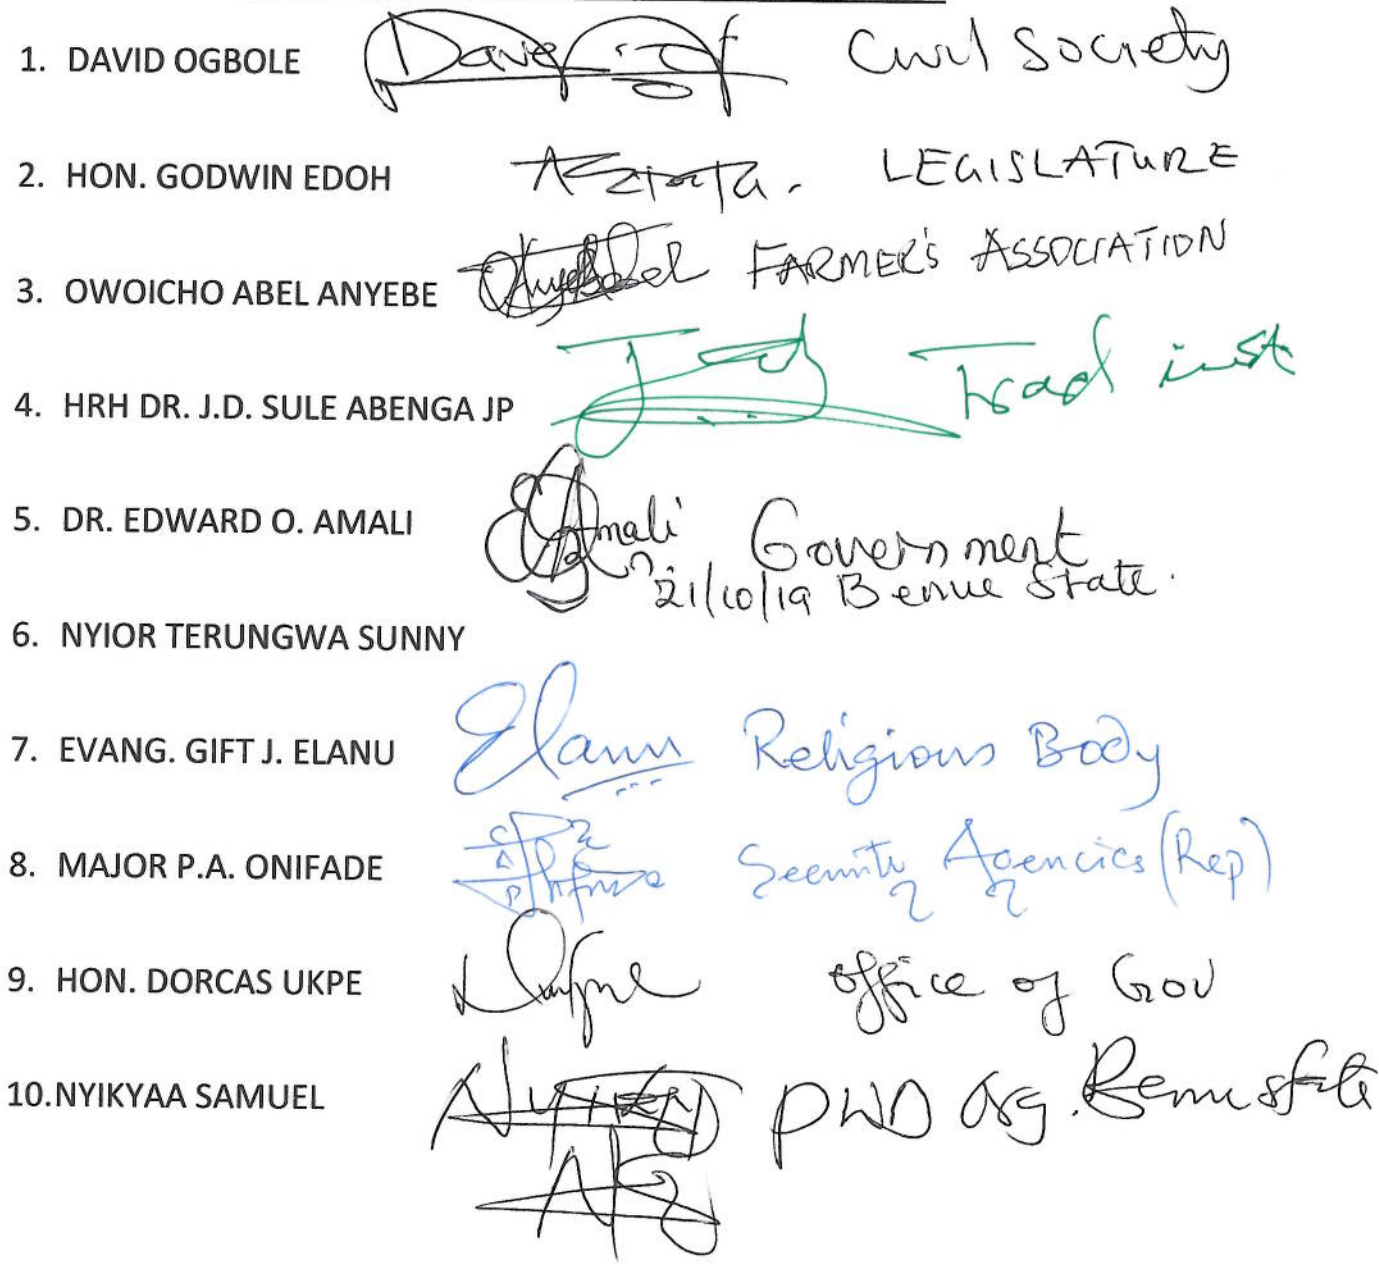 1. DAVID OGBOLE Civil Society
2. HON. GODWIN EDOH LEGISLATURE
3. OWOICHO ABEL ANYEBE FARMER'S ASSOCIATION
4. HRH DR. J.D. SULE ABENGA JP Trad inst
5. DR. EDWARD O. AMALI Amali Government
21/10/19 Benue State.
6. NYIOR TERUNGWA SUNNY
7. EVANG. GIFT J. ELANU Elanu Religious Body
8. MAJOR P.A. ONIFADE Security Agencies (Rep)
9. HON. DORCAS UKPE office of Gov
10. NYIKYAA SAMUEL PWD Org. Benue state